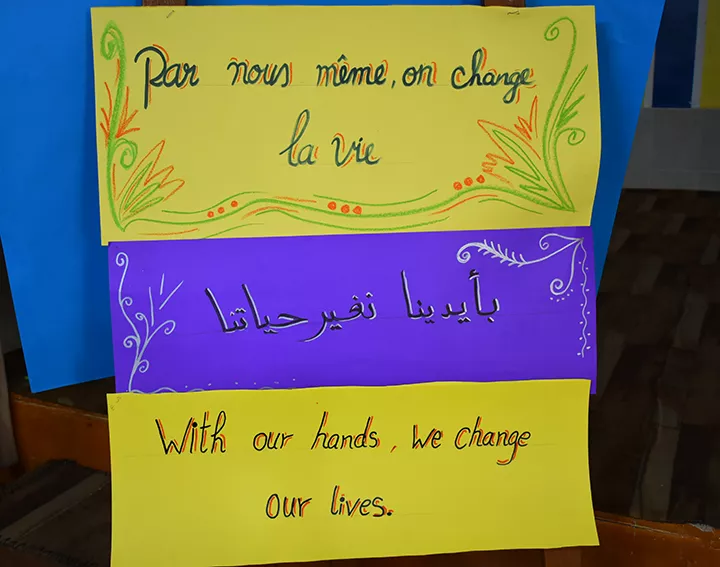 Par nous même, on change
la vie
بأيدينا نغير حياتنا
With our hands, we change
our lives.